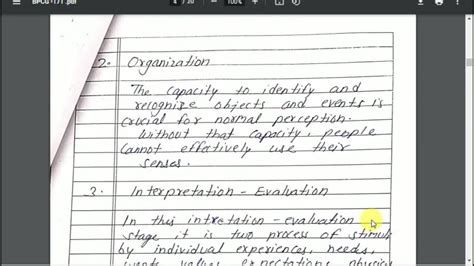 BPCG-171.pdf
4 / 20
100%
2. Organization
The capacity to identify and
recognize objects and events is
crucial for normal perception.
Without that capacity, people
cannot effectively use their
senses.
3. Interpretation - Evaluation
In this intretation - evaluation
stage it is two process of stimuli
by individual experiences, needs,
wants, values, expectations, physical